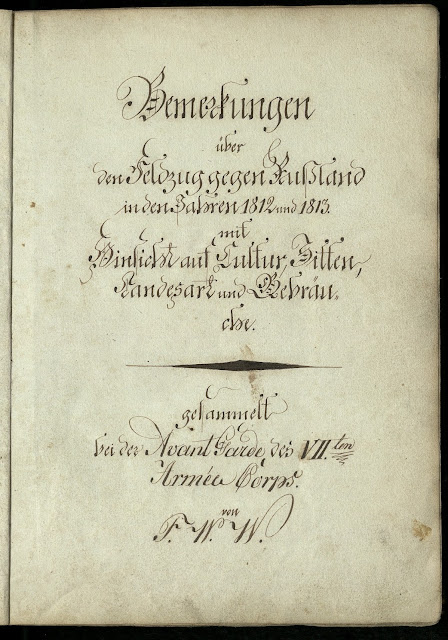 Bemerkungen
über
den Feldzug gegen Rußland
in den Jahren 1812 und 1813.
mit
Hinsicht auf Cultur, Sitten,
Landesart und Gebräu-
che.
gesammelt
bei der Avant Garde des VII.ten
Armée Corps.
von
F. W. W.